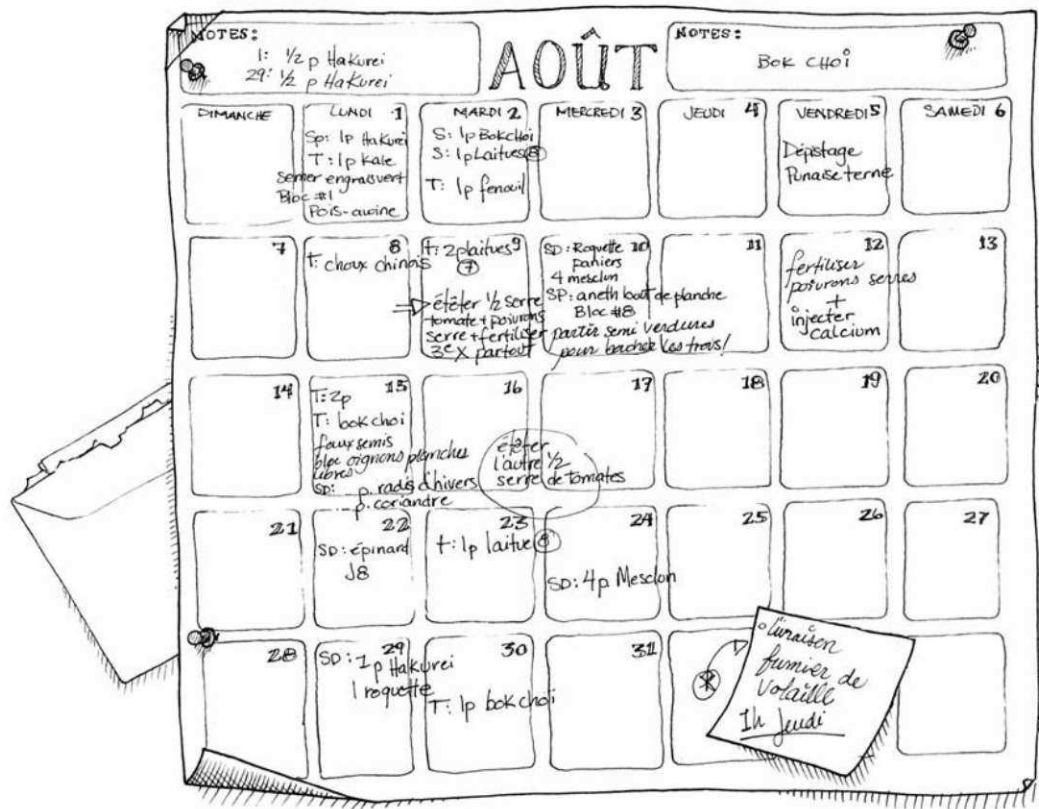 NOTES:
1: 1/2 p Hakurei
29: 1/2 p Hakurei
AOÛT
NOTES:
BOK CHOI
DIMANCHE
LUNDI 1
Sp: 1p Hakurei
T: 1p Kale
Semer engrais vert
Bloc #1
Pois-avoine
MARDI 2
S: 1p Bokchoi
S: 1p Laitues 8
T: 1p fenouil
MERCREDI 3
JEUDI 4
VENDREDI 5
Dépistage
Punaise terne
SAMEDI 6
7
8
T: choux chinois
9
t: 2p laitues
7
étêter 1/2 serre
tomate + poivrons
serre + fertiliser
3e X partout
10
SD: Roquette
paniers
4 mesclun
SP: aneth bout de planche
Bloc #8
partir semi verdures
pour bacher les trous!
11
12
fertiliser
poivrons serres
+
injecter
calcium
13
14
15
T: 2p
T: bok choi
faux semis
bloc oignons planches
libres
SD: p. radis d'hivers
p. coriandre
16
étêter
l'autre 1/2
serre de tomates
17
18
19
20
21
22
SD: épinard
J8
23
t: 1p laitue 8
24
SD: 4p Mesclun
25
26
27
28
29
SD: 1 p Hakurei
1 roquette
30
T: 1p bok choï
31
livraison
fumier de
volaille
1h jeudi